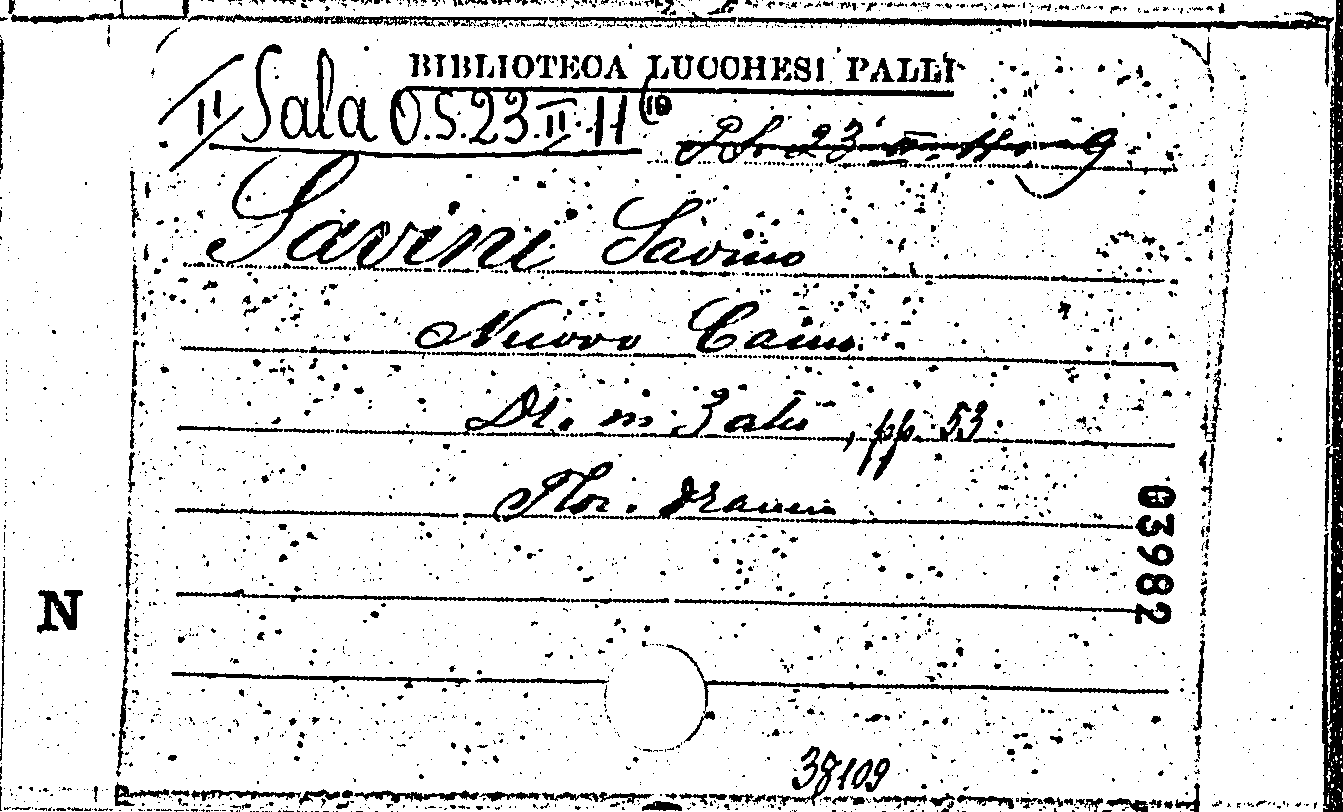 BIBLIOTECA LUCCHESI PALLI
II Sala O.S.23.II.11 (10
Savini Savino
Nuovo Caino.
Dr. in 3 atti, pp. 53.
Flor. dramm.
03982
N
38109